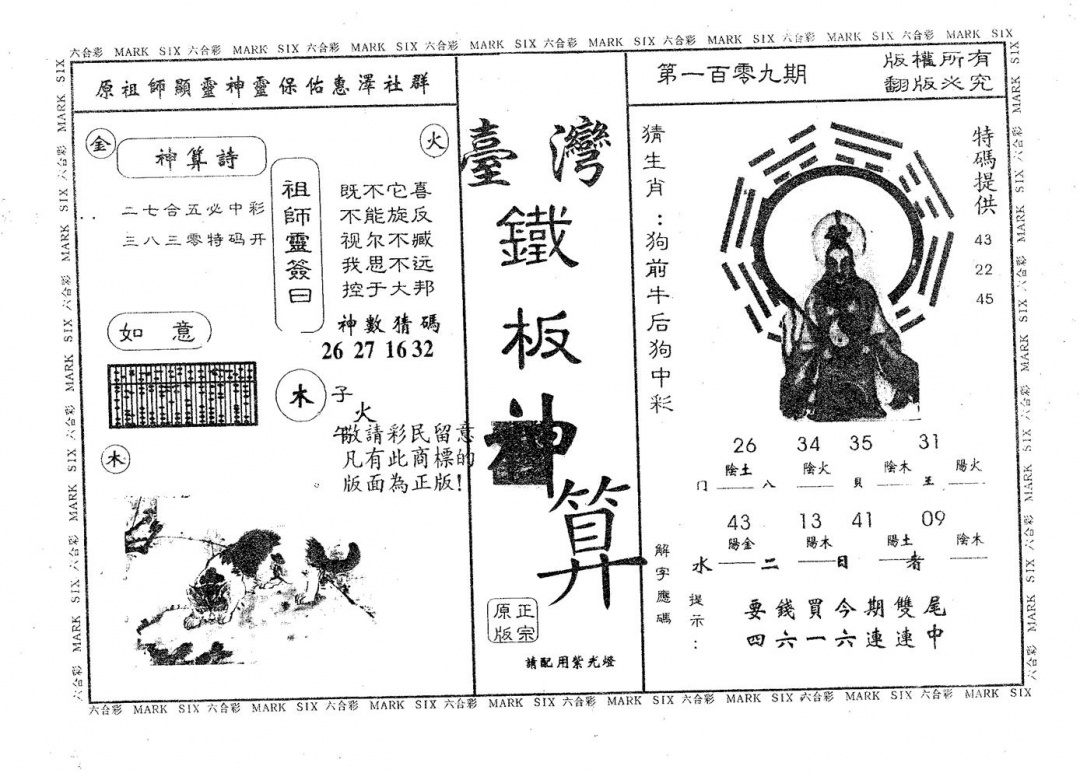 六合彩 MARK SIX 六合彩 MARK SIX 六合彩 MARK SIX 六合彩 MARK SIX 六合彩 MARK SIX 六合彩 MARK SIX 六合彩 MARK SIX 六合彩 MARK SIX
原祖師顯靈神靈保佑惠澤社群
金
火
神算詩
二七合五必中彩
三八三零特码开
祖師靈簽曰
既不它喜
不能旋反
视尔不臧
我思不远
控于大邦
神數猜碼
26 27 16 32
如意
木
子
火
午
敬請彩民留意
凡有此商標的
版面為正版!
木
臺灣
鐵
板
神
算
正宗
原版
請配用紫光燈
第一百零九期
版權所有
翻版必究
猜生肖:狗前牛后狗中彩
特碼提供
43
22
45
26 34 35 31
陰土 陰火 陰木 陽火
门 八 貝 王
43 13 41 09
陽金 陽木 陽土 陰木
水 二 日 者
解字應碼
提示:
要錢買今期雙尾
四六一六連連中
六合彩 MARK SIX 六合彩 MARK SIX 六合彩 MARK SIX 六合彩 MARK SIX 六合彩 MARK SIX 六合彩 MARK SIX 六合彩 MARK SIX 六合彩 MARK SIX